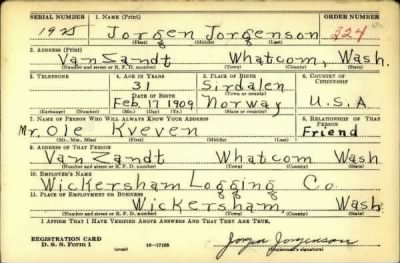 SERIAL NUMBER 1. NAME (Print) ORDER NUMBER
1925 Jorgen Jorgenson 324
(First) (Middle) (Last)
2. ADDRESS (Print)
Van Zandt Whatcom, Wash.
(Number and street or R. F. D. number) (Town) (County) (State)
3. TELEPHONE 4. AGE IN YEARS 5. PLACE OF BIRTH 6. COUNTRY OF CITIZENSHIP
31 Sirdalen
DATE OF BIRTH (Town or county)
Feb. 17 1909 Norway U.S.A
(Exchange) (Number) (Mo.) (Day) (Yr.) (State or country)
7. NAME OF PERSON WHO WILL ALWAYS KNOW YOUR ADDRESS 8. RELATIONSHIP OF THAT PERSON
Mr. Ole Kveven Friend
(Mr., Mrs., Miss) (First) (Middle) (Last)
9. ADDRESS OF THAT PERSON
Van Zandt Whatcom Wash
(Number and street or R. F. D. number) (Town) (County) (State)
10. EMPLOYER'S NAME
Wickersham Logging Co.
11. PLACE OF EMPLOYMENT OR BUSINESS
Wickersham, Wash
(Number and street or R. F. D. number) (Town) (County) (State)
I AFFIRM THAT I HAVE VERIFIED ABOVE ANSWERS AND THAT THEY ARE TRUE.
REGISTRATION CARD
D. S. S. Form 1 (over) 16—17105 Jorgen Jorgenson
(Registrant's signature)